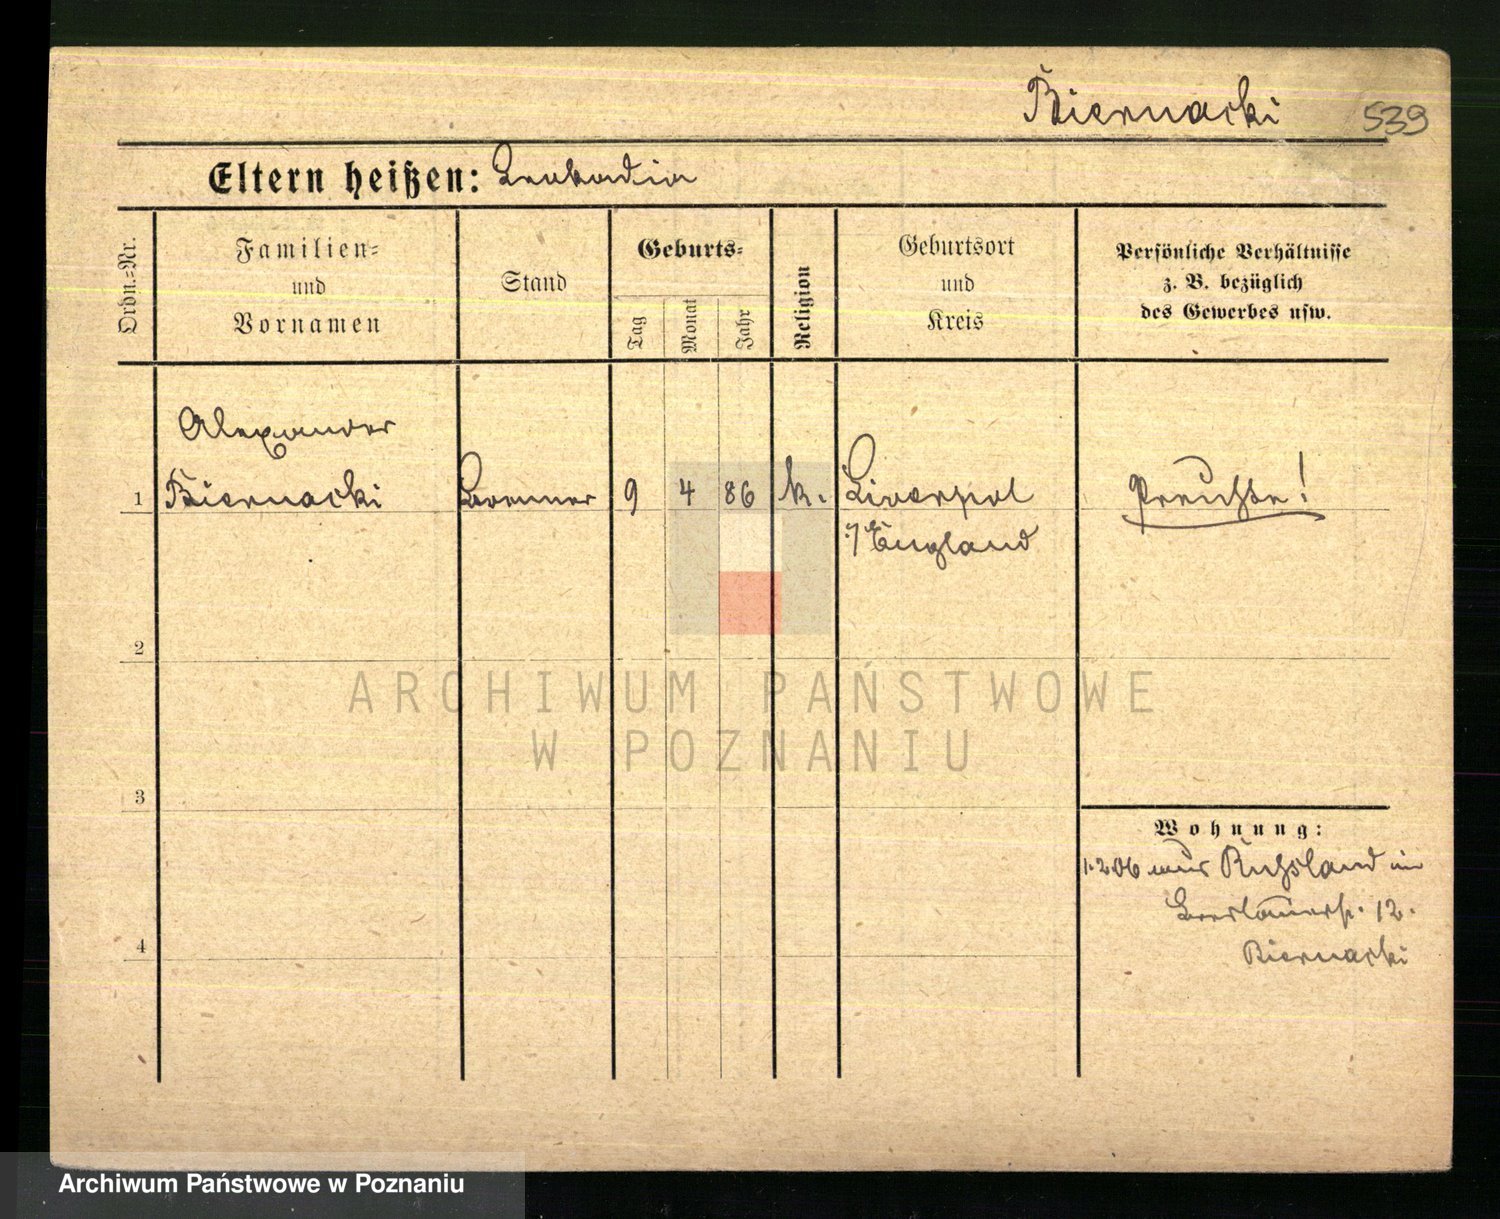 Biernacki 539
Eltern heißen: Leokadia
Ordn.-Nr.
Familien-
und
Vornamen
Stand
Geburts-
Tag
Monat
Jahr
Religion
Geburtsort
und
Kreis
Persönliche Verhältnisse
z. B. bezüglich
des Gewerbes usw.
Alexander
1 Biernacki Brenner 9 4 86 k. Liverpol Preuße!
i/ England
2
3
4
Wohnung:
1.2.06 aus Rußland in
Breslauerstr. 12.
Biernacki
ARCHIWUM PAŃSTWOWE
W POZNANIU
Archiwum Państwowe w Poznaniu